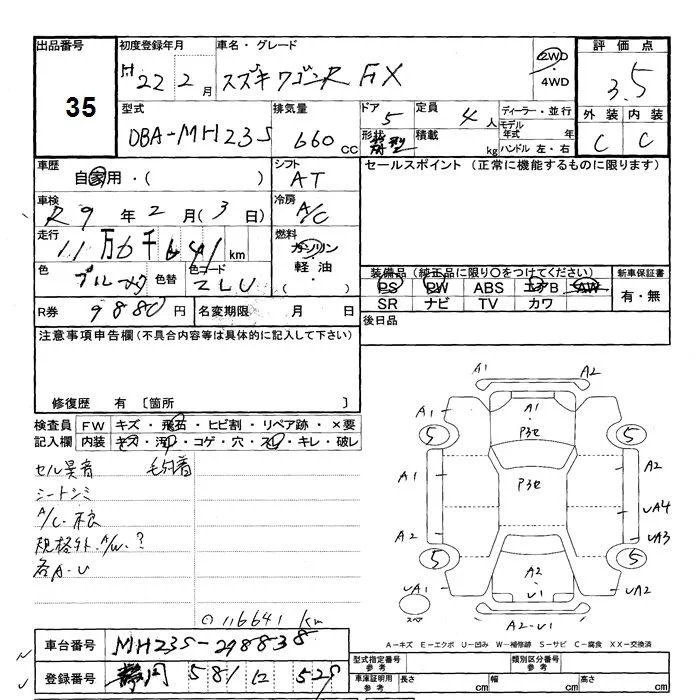 出品番号
35
初度登録年月
H22年2月
車名・グレード
スズキ ワゴンR FX
2WD
・
4WD
評価点
3.5
型式
DBA-MH23S
排気量
660 CC
ドア
5
形状
定員
4人
積載
kg
ディーラー・並行
モデル
年式 年
ハンドル 左・右
外装
内装
C
C
車歴
自家用・( )
シフト
AT
セールスポイント (正常に機能するものに限ります)
車検
R9年2月(3日)
冷房
A/C
走行
11万6千641km
燃料
ガソリン
軽油
色
色替
色コード
ZLU
装備品 (純正品に限り○をつけてください)
PS PW ABS エアB AW
SR ナビ TV カワ
新車保証書
有・無
R券
9880円
名変期限 月 日
後日品
注意事項申告欄(不具合内容等は具体的に記入して下さい)
修復歴 有 〔箇所 〕
検査員
記入欄
FW キズ・飛石・ヒビ割・リペア跡・×要
内装 キズ・汚・コゲ・穴・スレ・キレ・破レ
セル異音
シートシミ
A/C.不良
規格外.A/W.?
各A.U
116641 km
A1
A2
A1
A1
5
5
P3セ
A1
P3セ
A2
UA4
A2
UA3
5
5
A2
U1
UA1
UA2
スペア
A2-U1
A−キズ E−エクボ U−凹み W−補修跡 S−サビ C−腐食 XX−交換済
車台番号
MH23S-298838
登録番号
静岡 581 529
型式指定番号
参考
類別区分番号
参考
車庫証明用
参考
長さ cm
幅 cm
高さ cm